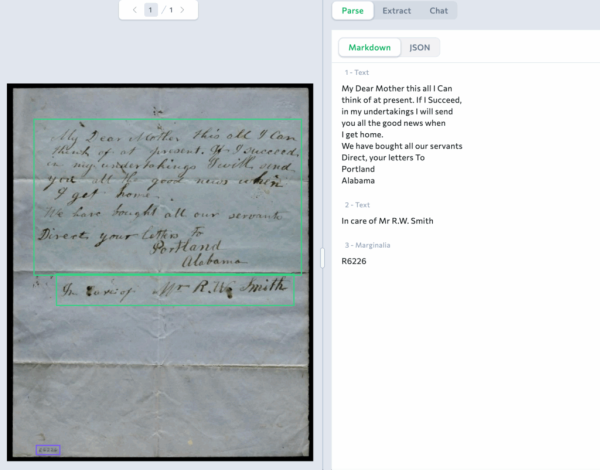 1 / 1
My Dear Mother this all I Can
think of at present. If I Succeed,
in my undertakings I will send
you all the good news when
I get home.
We have bought all our servants
Direct, your letters To
Portland
Alabama
In care of Mr R.W. Smith
Parse Extract Chat
Markdown JSON
1 - Text
My Dear Mother this all I Can
think of at present. If I Succeed,
in my undertakings I will send
you all the good news when
I get home.
We have bought all our servants
Direct, your letters To
Portland
Alabama
2 - Text
In care of Mr R.W. Smith
3 - Marginalia
R6226